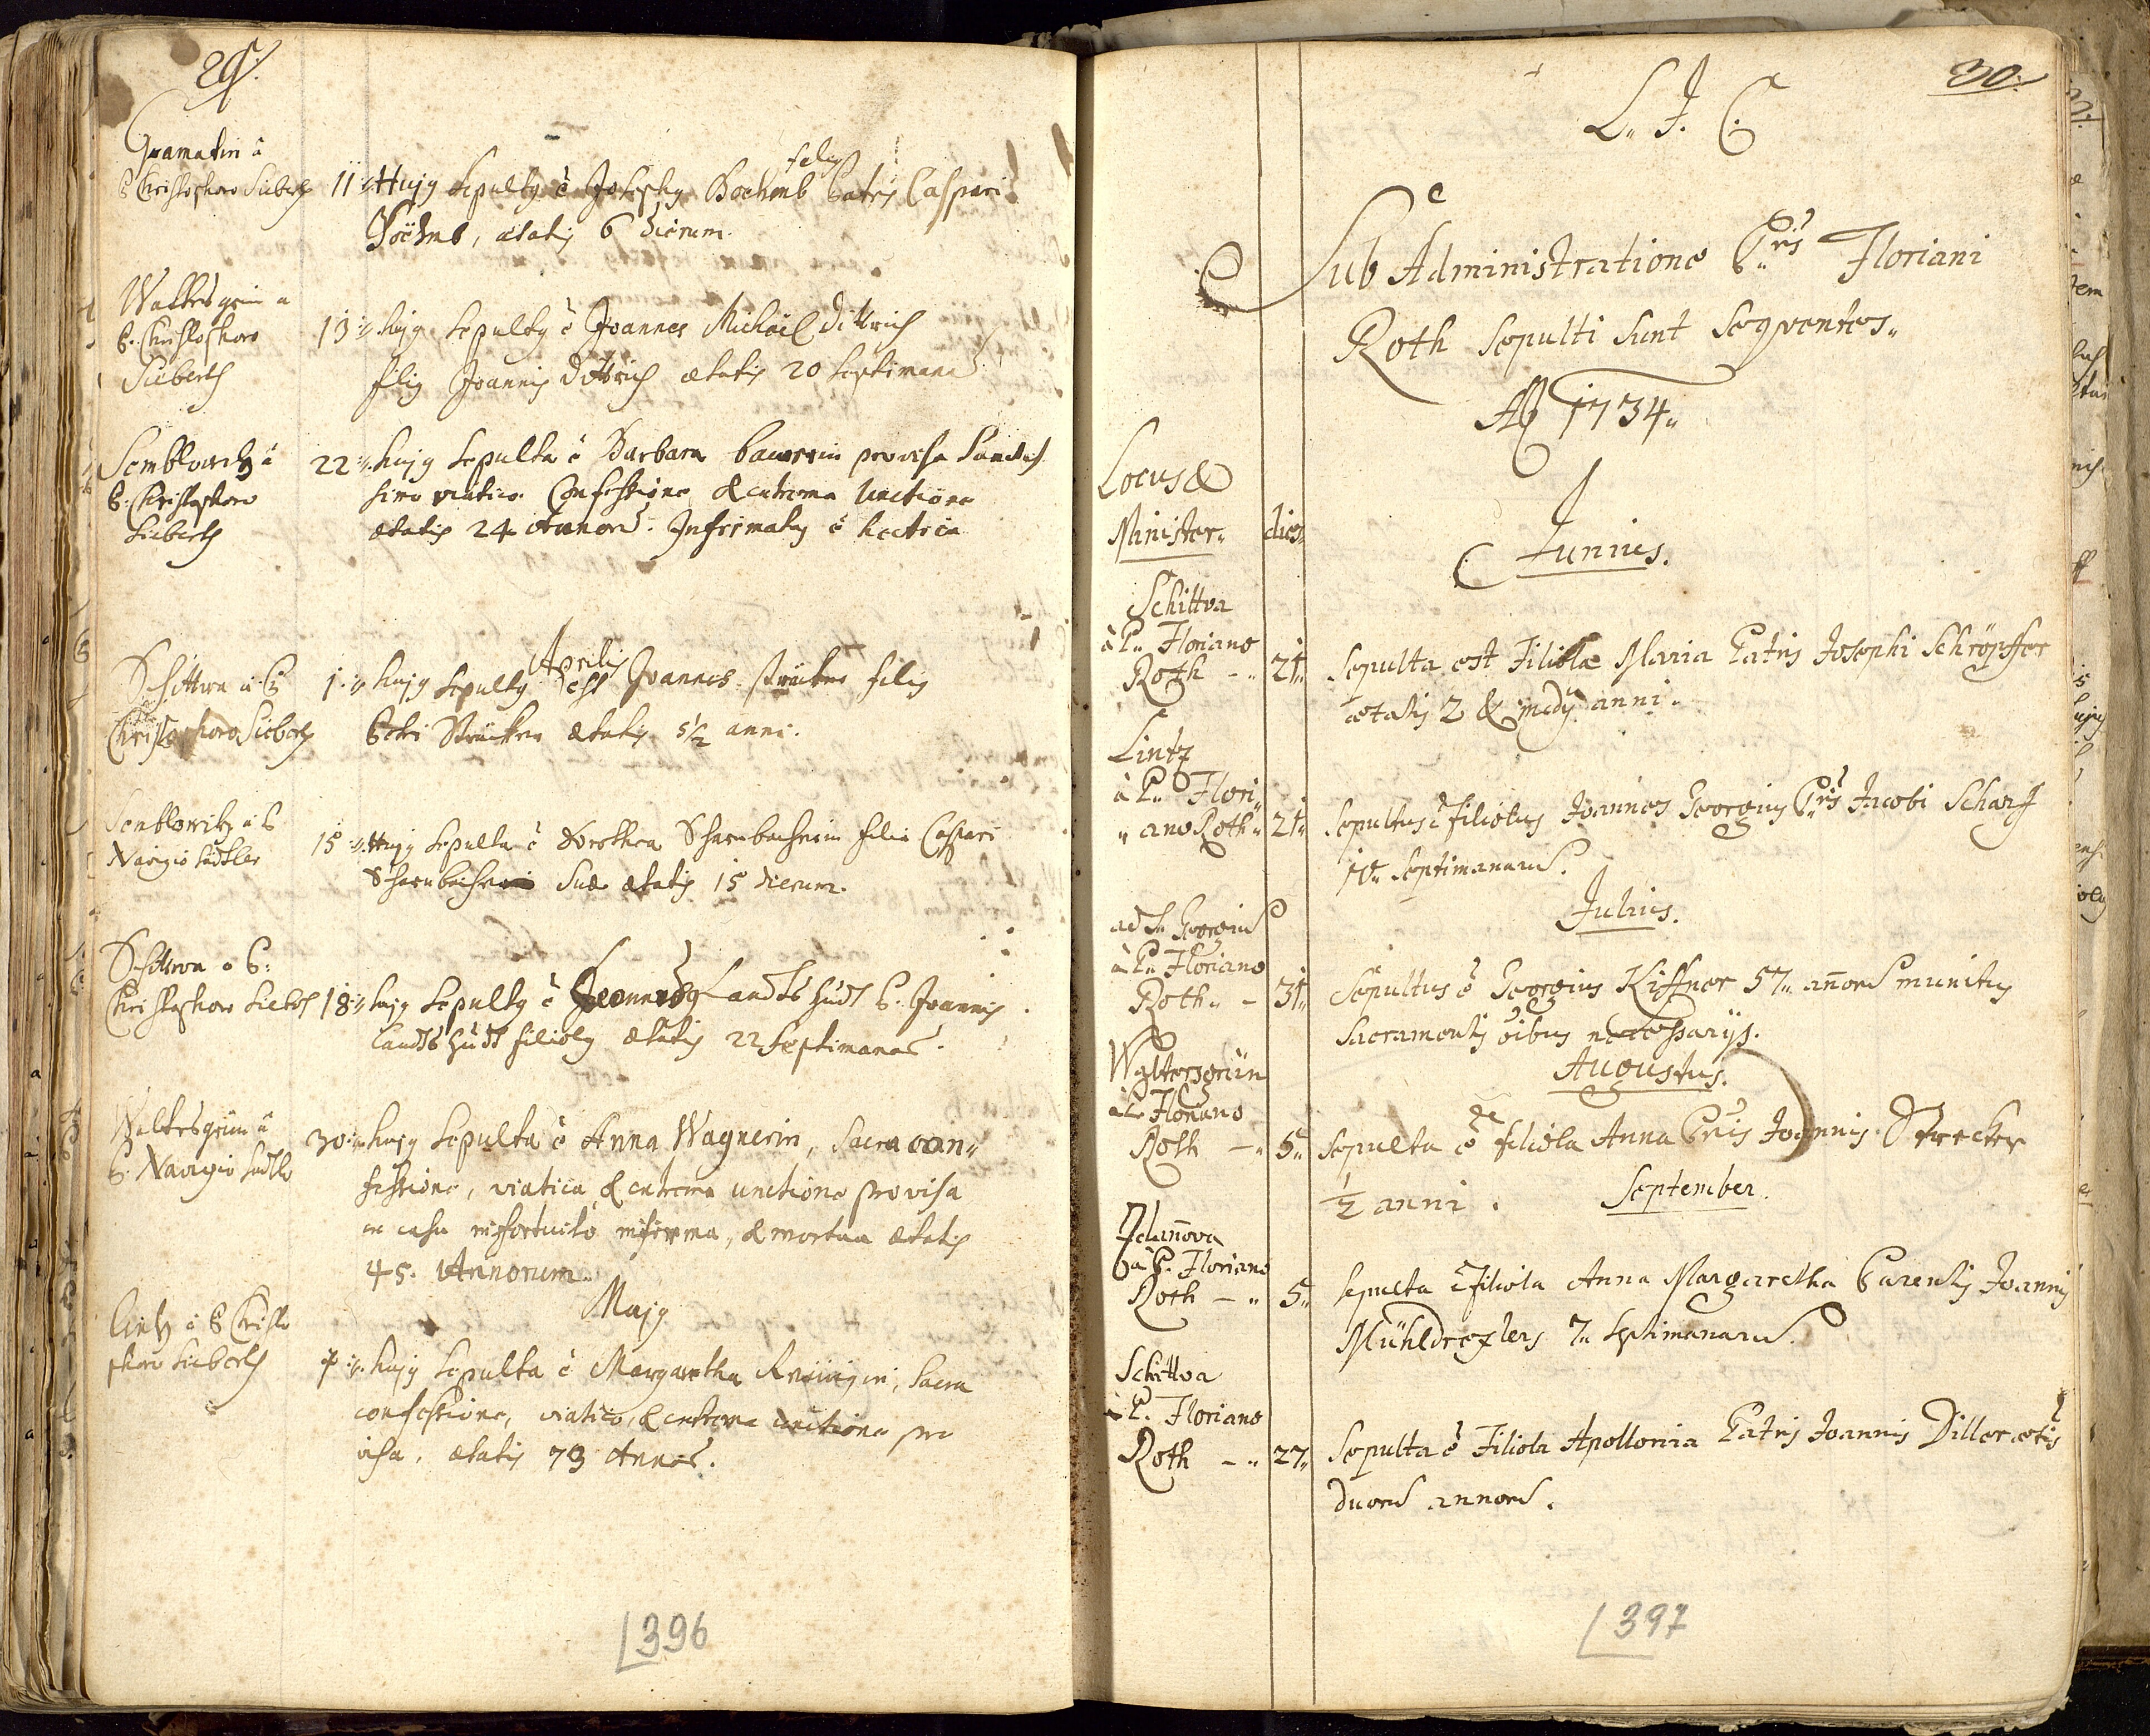 29.
Gramatin â
P Christophoro Sieberth
11 Hujq Sepultq ē Josephq Boehmb filiq Patris Caspari
Böehmb, ætatis 6 dierum.
Waltersgrin a
P. Christophoro
Sieberth
13 hujq Sepultq ē Joannes Michäel dittrich
filiq Joannis dittrich ætatis 20 septimanar
Semblowitz â
P. Christophoro
Sieberth
22 hujq Sepulta ē Barbara baurrin provisa Sanctis
simo viatico Confessione & extrema Unctione
ætatis 24 Annor. Infirmatq ē hectica
Aprilis
Schittwa â P
Christophoro Sieberth
1. hujq Sepultq est Joannes sträcker filiq
Petri Sträcker ætatis 5 1/2 anni.
Semblowitz â P
Sadtler
15 Hujq Sepulta ē Dorothea filia Caspari
Suæ ætatis 15 dierum.
Schittwa a P:
Christophoro Sieberth
18 hujq Sepultq ē Landtshudt P. Joannis
Landtshüdt filiolq ætatis 22 Septimanar.
Waltersgrün â
P.
30 hujq Sepulta ē Anna Wagnerin, Sacra con„
fessione, viatico, & extrema unctione provisa
in casu infortuito infirma, & mortua ætatis
45. Annorum.
Majq
Lintz â P Christo
phoro Sieberth
7 hujq Sepulta ē Margaretha sacra
confessione, viatico, & extrema unctione pro
visa, ætatis 73 Annor.
396
30.
L. J. C.
Sub Administratione P.ris Floriani
Roth Sepulti Sunt Seqventes„
Aō 1734„
Locus &
Minister„ dies„
Junius.
Schittva
à P„ Floriano
Roth -„ 21„ Sepulta est Filiola Maria Patris Josephi Schröpffer
ætatis 2 & medij anni.
Lintz
à P„ Flori„
„ano Roth„ 21„ Sepultus ē filiolus Joannes Georgius P.ris Jacobi Scharf
10„ Septimanarū.
Julius.
ad S. Georgiū
à P„ Floriano
Roth„ - 31„ Sepultus ē Georgius Kiffner 57„ annorū munitus
Sacramentis oībus necessarijs.
Augustus.
Waltersgrün
à P. Floriano
Roth -„ 5„ Sepulta ē filiola Anna P.ris Joannis Strecker
1/2 anni.
September.
Zdannova
à P. Floriano
Roth -„ 5„ Sepulta ē Filiola Anna Margaretha Parentis Joannis
Mühldrexlers 7„ Septimanarū.
Schittva
à P. Floriano
Roth -„ 27„ Sepulta ē Filiola Apollonia Patris Joannis Diller ætis
duorū annorū.
397